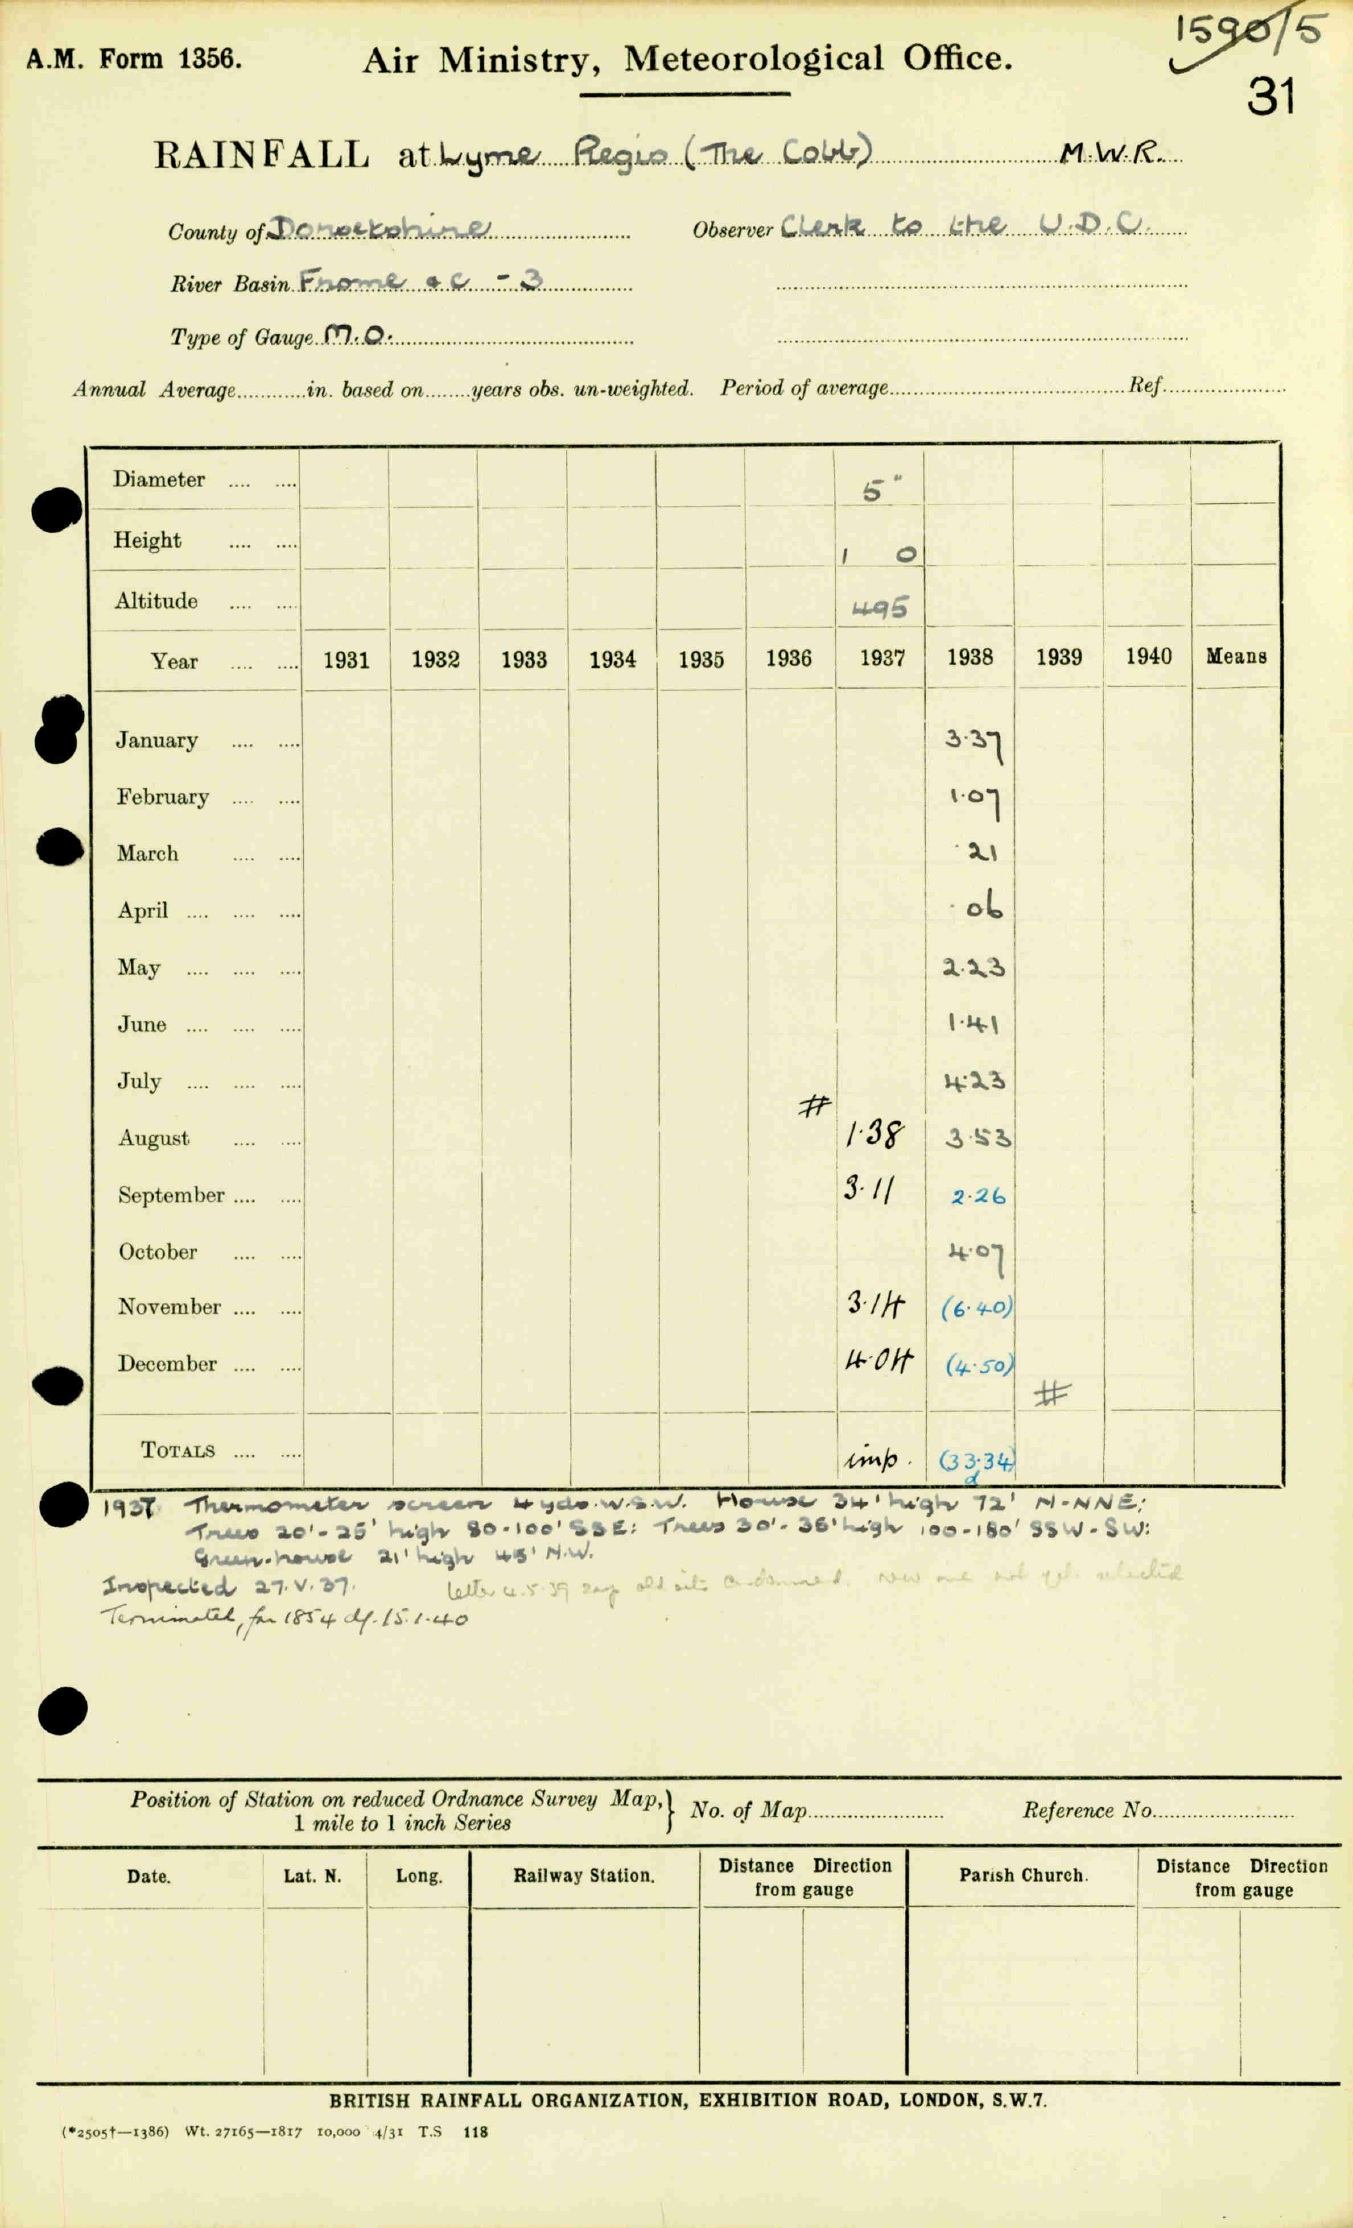 1590/5
A.M. Form 1356. Air Ministry, Meteorological Office.
31
RAINFALL at Lyme Regis (The Cobb) M.W.R.
County of Dorsetshire Observer Clerk to the U.D.C.
River Basin Frome &c - 3
Type of Gauge M.O.
Annual Average............in. based on........years obs. un-weighted. Period of average.............................. Ref.....................
Diameter .... .... 5"
Height .... .... 1 0
Altitude .... .... 495
Year .... .... 1931 1932 1933 1934 1935 1936 1937 1938 1939 1940 Means
January .... .... 3.37
February .... .... 1.07
March .... .... .21
April .... .... .... .06
May .... .... .... 2.23
June .... .... .... 1.41
July .... .... .... 4.23
#
August .... .... 1.38 3.53
September .... .... 3.11 2.26
October .... .... 4.07
November .... .... 3.14 (6.40)
December .... .... 4.04 (4.50)
#
TOTALS .... .... imp. (33.34)
d
1937 Thermometer screen 4 yds. W.S.W. House 34' high 72' N-NNE;
Trees 20'-25' high 80-100' SSE: Trees 30'-35' high 100-180' SSW-SW:
Green-house 21' high 45' N.W.
Inspected 27.V.37. Letter 4.5.39 says old site condemned, new one not yet selected
Terminated, for 1854 df. 15.1.40
Position of Station on reduced Ordnance Survey Map,} No. of Map........................ Reference No.........................
1 mile to 1 inch Series
Date. Lat. N. Long. Railway Station. Distance Direction Parish Church. Distance Direction
from gauge from gauge
BRITISH RAINFALL ORGANIZATION, EXHIBITION ROAD, LONDON, S.W.7.
(*2505†—1386) Wt. 27165—1817 10,000 4/31 T.S 118